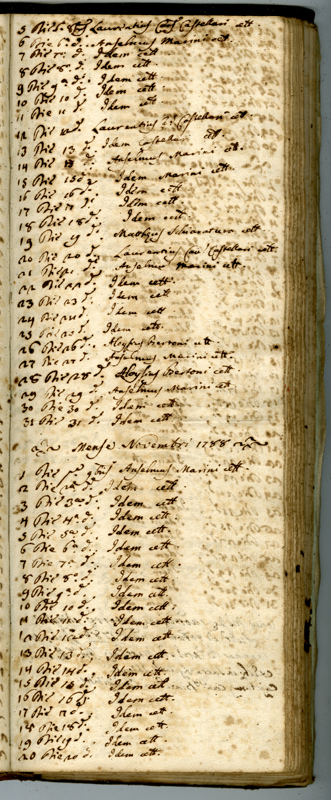 5 Die 5 d. Laurentius Castellari ett.
6 Die 6 d. Anselmus Marini ett.
7 Die 7 d. Idem ett.
8 Die 8 d. Idem ett.
9 Die 9 d. Idem ett.
10 Die 10 d. Idem ett
11 Die 11 d. Idem ett
12 Die 12 d. Laurentius Castellari ett
13 Die 13 d. Idem Castellari ett.
14 Die d. Anselmus Marini ett.
15 Die 15 d. Idem Marini ett.
16 Die 16 d. Idem ett
17 Die 17 d. Idem ett
18 Die 18 d. Idem ett
19 Die 19 d. ett
20 Die 20 d. Laurentius Castellari ett.
21 Die 21 d. Anselmus Marini ett.
22 Die 22 d. Idem ett.
23 Die 23 d. Idem ett
24 Die 24 d. Idem ett
25 Die 25 d. Idem ett.
26 Die 26 d. Aloysius Bertoni ett.
27 Die 27 d. Anselmus Marini ett.
28 Die 28 d. Aloysius Bertoni ett
29 Die 29 d. Anselmus Marini ett
30 Die 30 d. Idem ett
31 Die 31 d. Idem ett
Mense Novembri 1788
1 Die Anselmus Marini ett
2 Die 2 d. Idem ett
3 Die 3 d. Idem ett.
4 Die 4 d. Idem ett.
5 Die 5 d. Idem ett
6 Die 6 d. Idem ett.
7 Die 7 d. Idem ett
8 Die 8 d. Idem ett
9 Die 9 d. Idem ett
10 Die 10 d. Idem ett.
11 Die 11 d. Idem ett
12 Die 12 d. Idem ett
13 Die 13 d. Idem ett
14 Die 14 d. Idem ett.
15 Die 15 d. Idem ett
16 Die 16 d. Idem ett.
17 Die 17 d. Idem ett
18 Die 18 d. Idem ett
19 Die 19 d. Idem ett
20 Die 20 d. Idem ett.